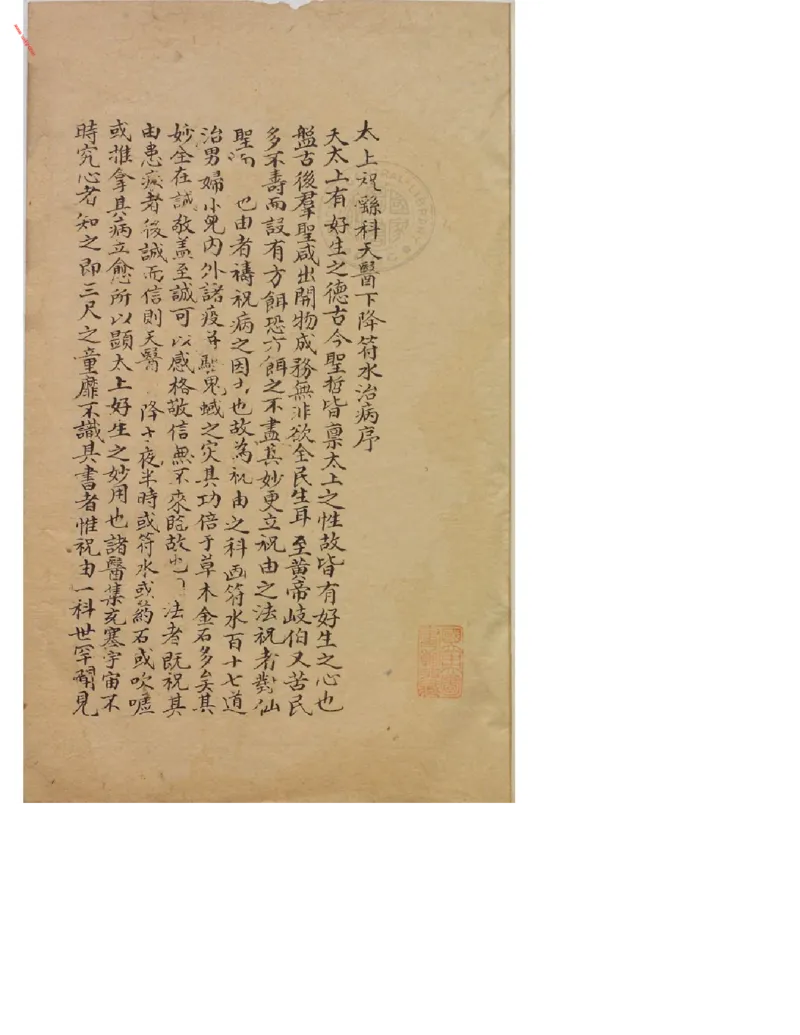 太上祝繇科天醫下降符水治病序
天太上有好生之德古今聖哲皆稟太上之性故皆有好生之心也
盤古後羣聖咸出開物成務無非欲全民生耳至黃帝岐伯又苦民
多不壽而設有方餌恐方餌之不盡其妙更立祝由之法祝者對仙
聖 也由者禱祝病之因 也故為祝由之科画符水百十七道
治男婦小兒內外諸疫并 鬼蜮之灾其功倍于草木金石多矣其
妙全在誠敬盖至誠可以感格敬信無不來 故 法者既祝其
由患瘊者後誠而信則天醫 降 夜半時或符水或药石或吹噓
或推拿其病立愈所以顕太上好生之妙用也諸醫集充塞宇宙不
時究心者知之即三尺之童靡不識其書者惟祝由一科世罕聞見